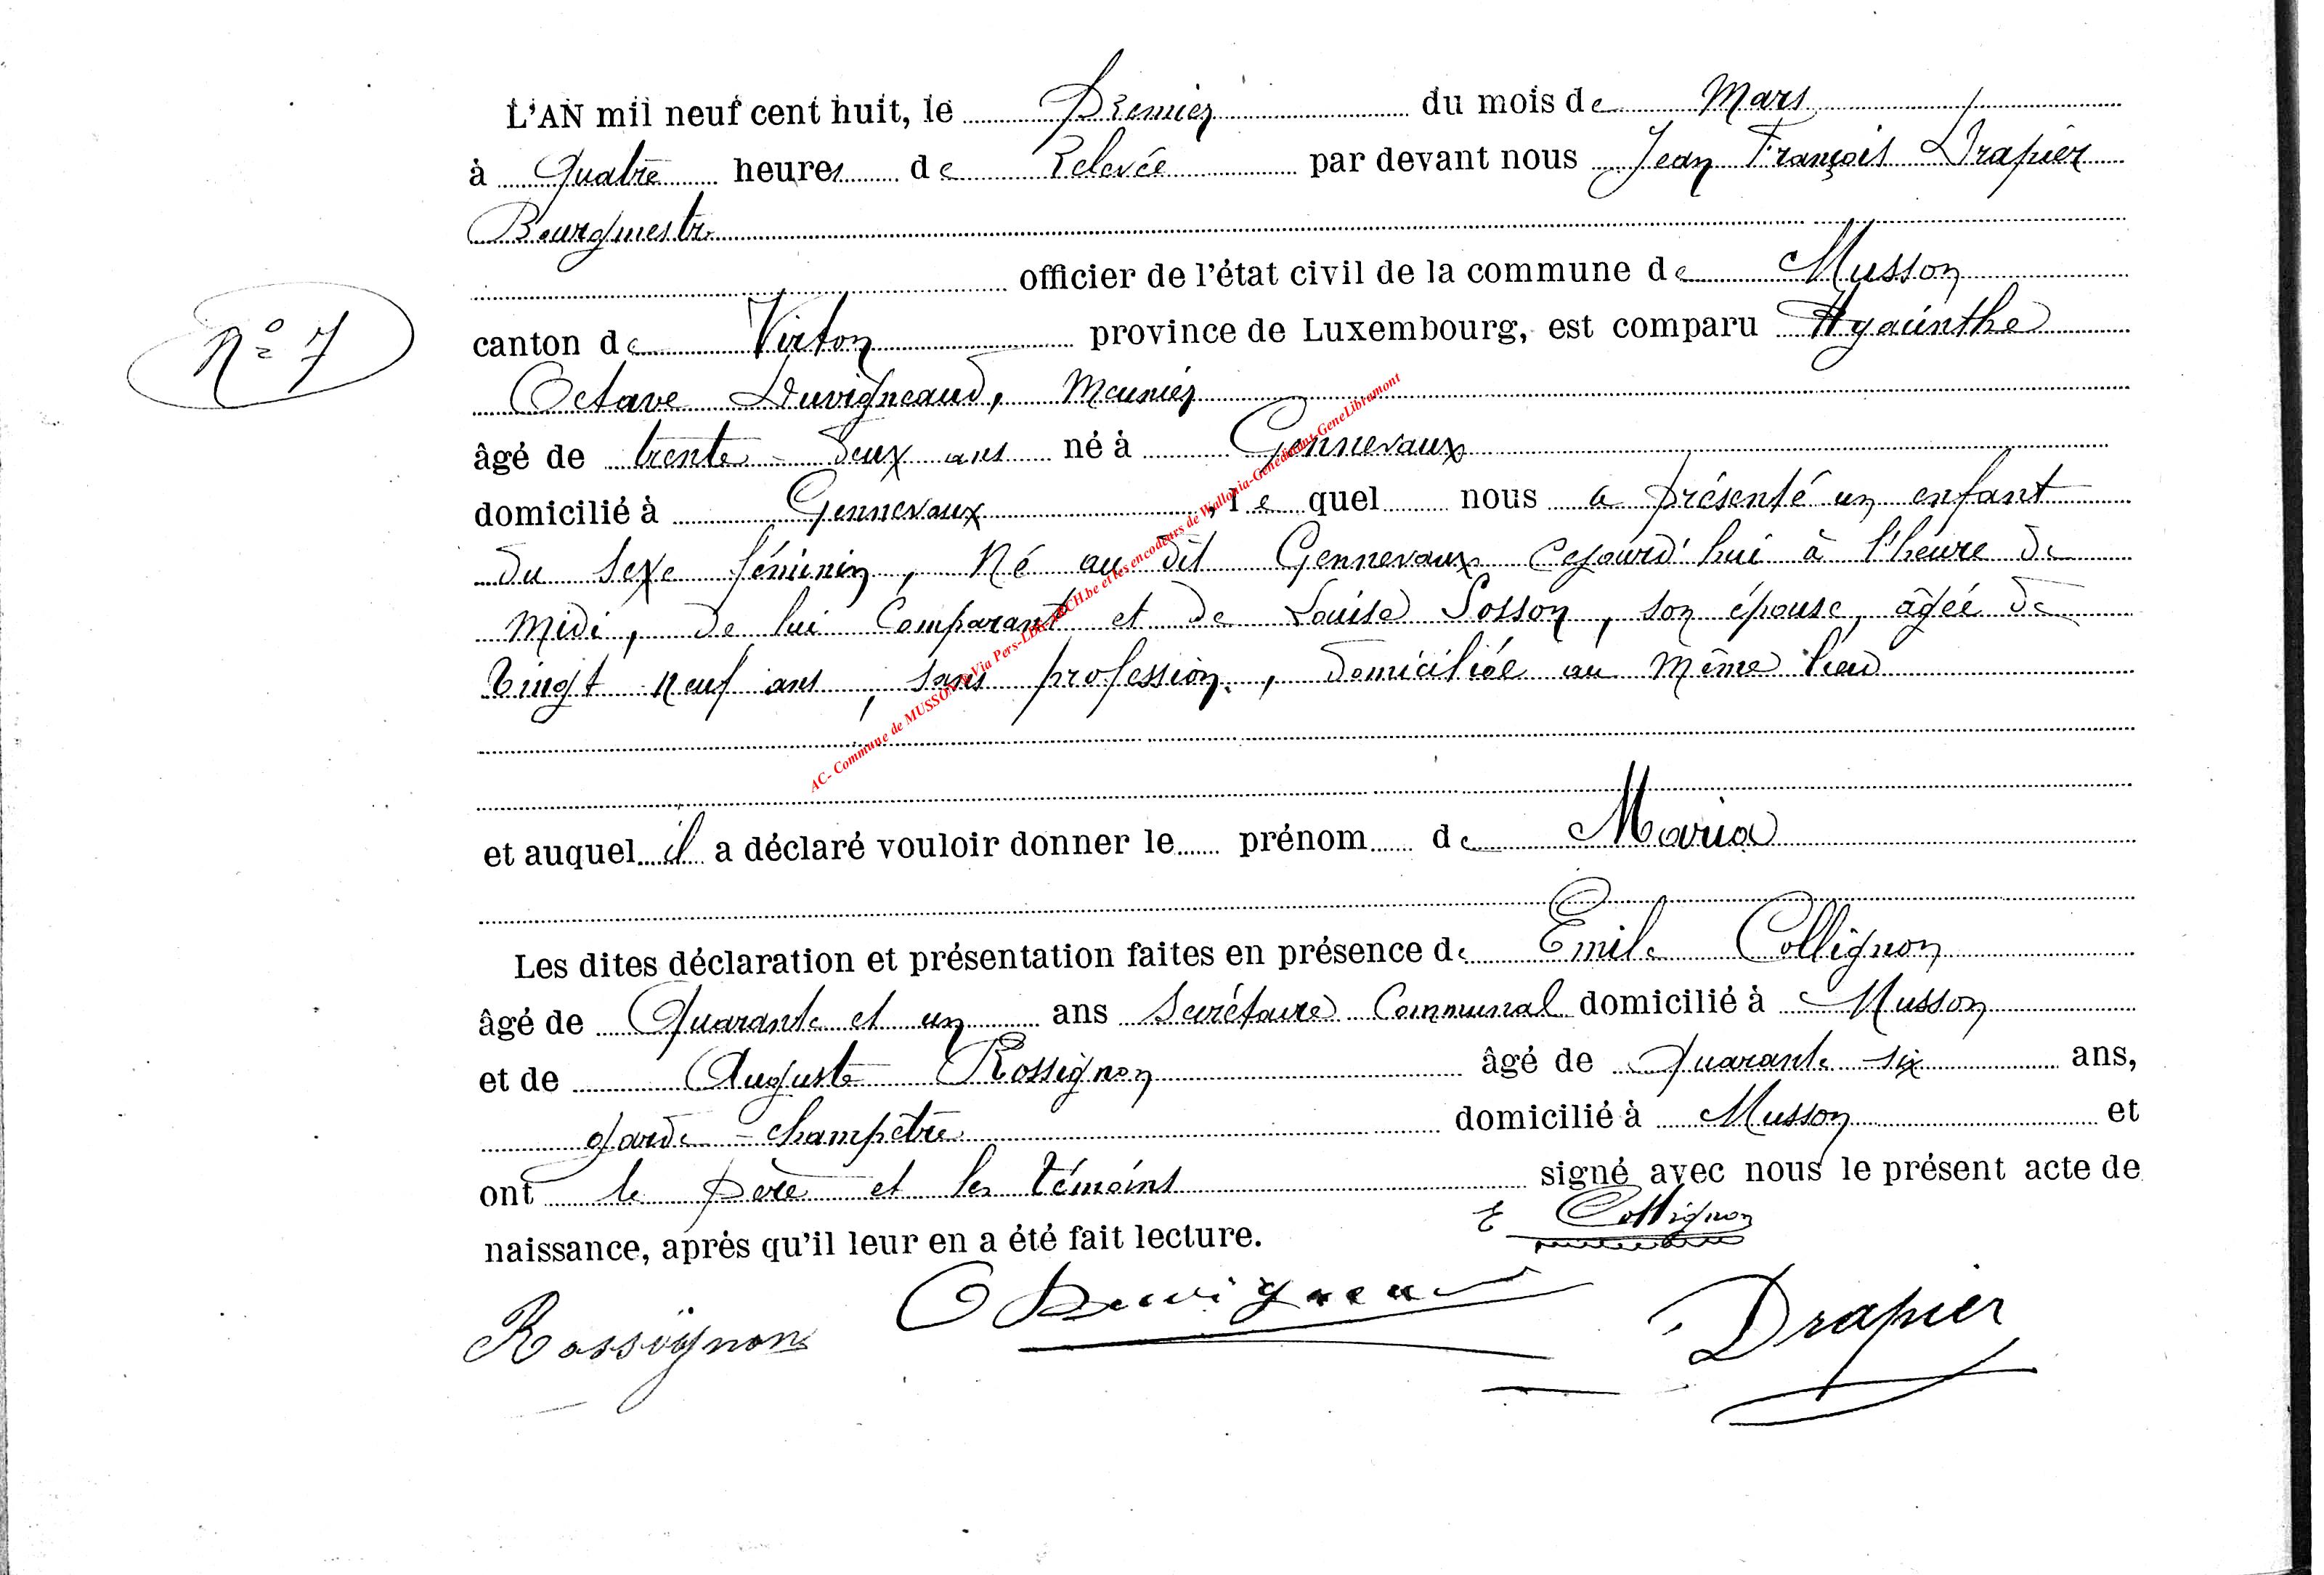 L'AN mil neuf cent huit, le Premier du mois de Mars
à Quatre heures de Relevée par devant nous Jean François Drapier
Bourgmestre
officier de l'état civil de la commune de Musson
N° 7
canton de Virton province de Luxembourg, est comparu Hyacinthe
Octave Duvigneaud, Meunier
âgé de trente-deux ans né à Gennevaux
domicilié à Gennevaux, le quel nous a présenté un enfant
du sexe féminin, né au dit Gennevaux Cejourd'hui à l'heure de
midi, de lui Comparant et de Louise Sosson, son épouse, âgée de
Vingt neuf ans, sans profession, domiciliée au même lieu
AC- Commune de MUSSON - Via Pers-LUX-ARCH.be et les encodeurs de Wallonia-Genedinant-GeneLibramont
et auquel il a déclaré vouloir donner le prénom de Maria
Les dites déclaration et présentation faites en présence de Emile Collignon
âgé de Quarante et un ans Secrétaire Communal domicilié à Musson
et de Auguste Rossignon âgé de Quarante six ans,
garde-champêtre domicilié à Musson et
ont le père et les témoins signé avec nous le présent acte de
naissance, après qu'il leur en a été fait lecture.
E Collignon
Rossignon O Duvigneaud Drapier